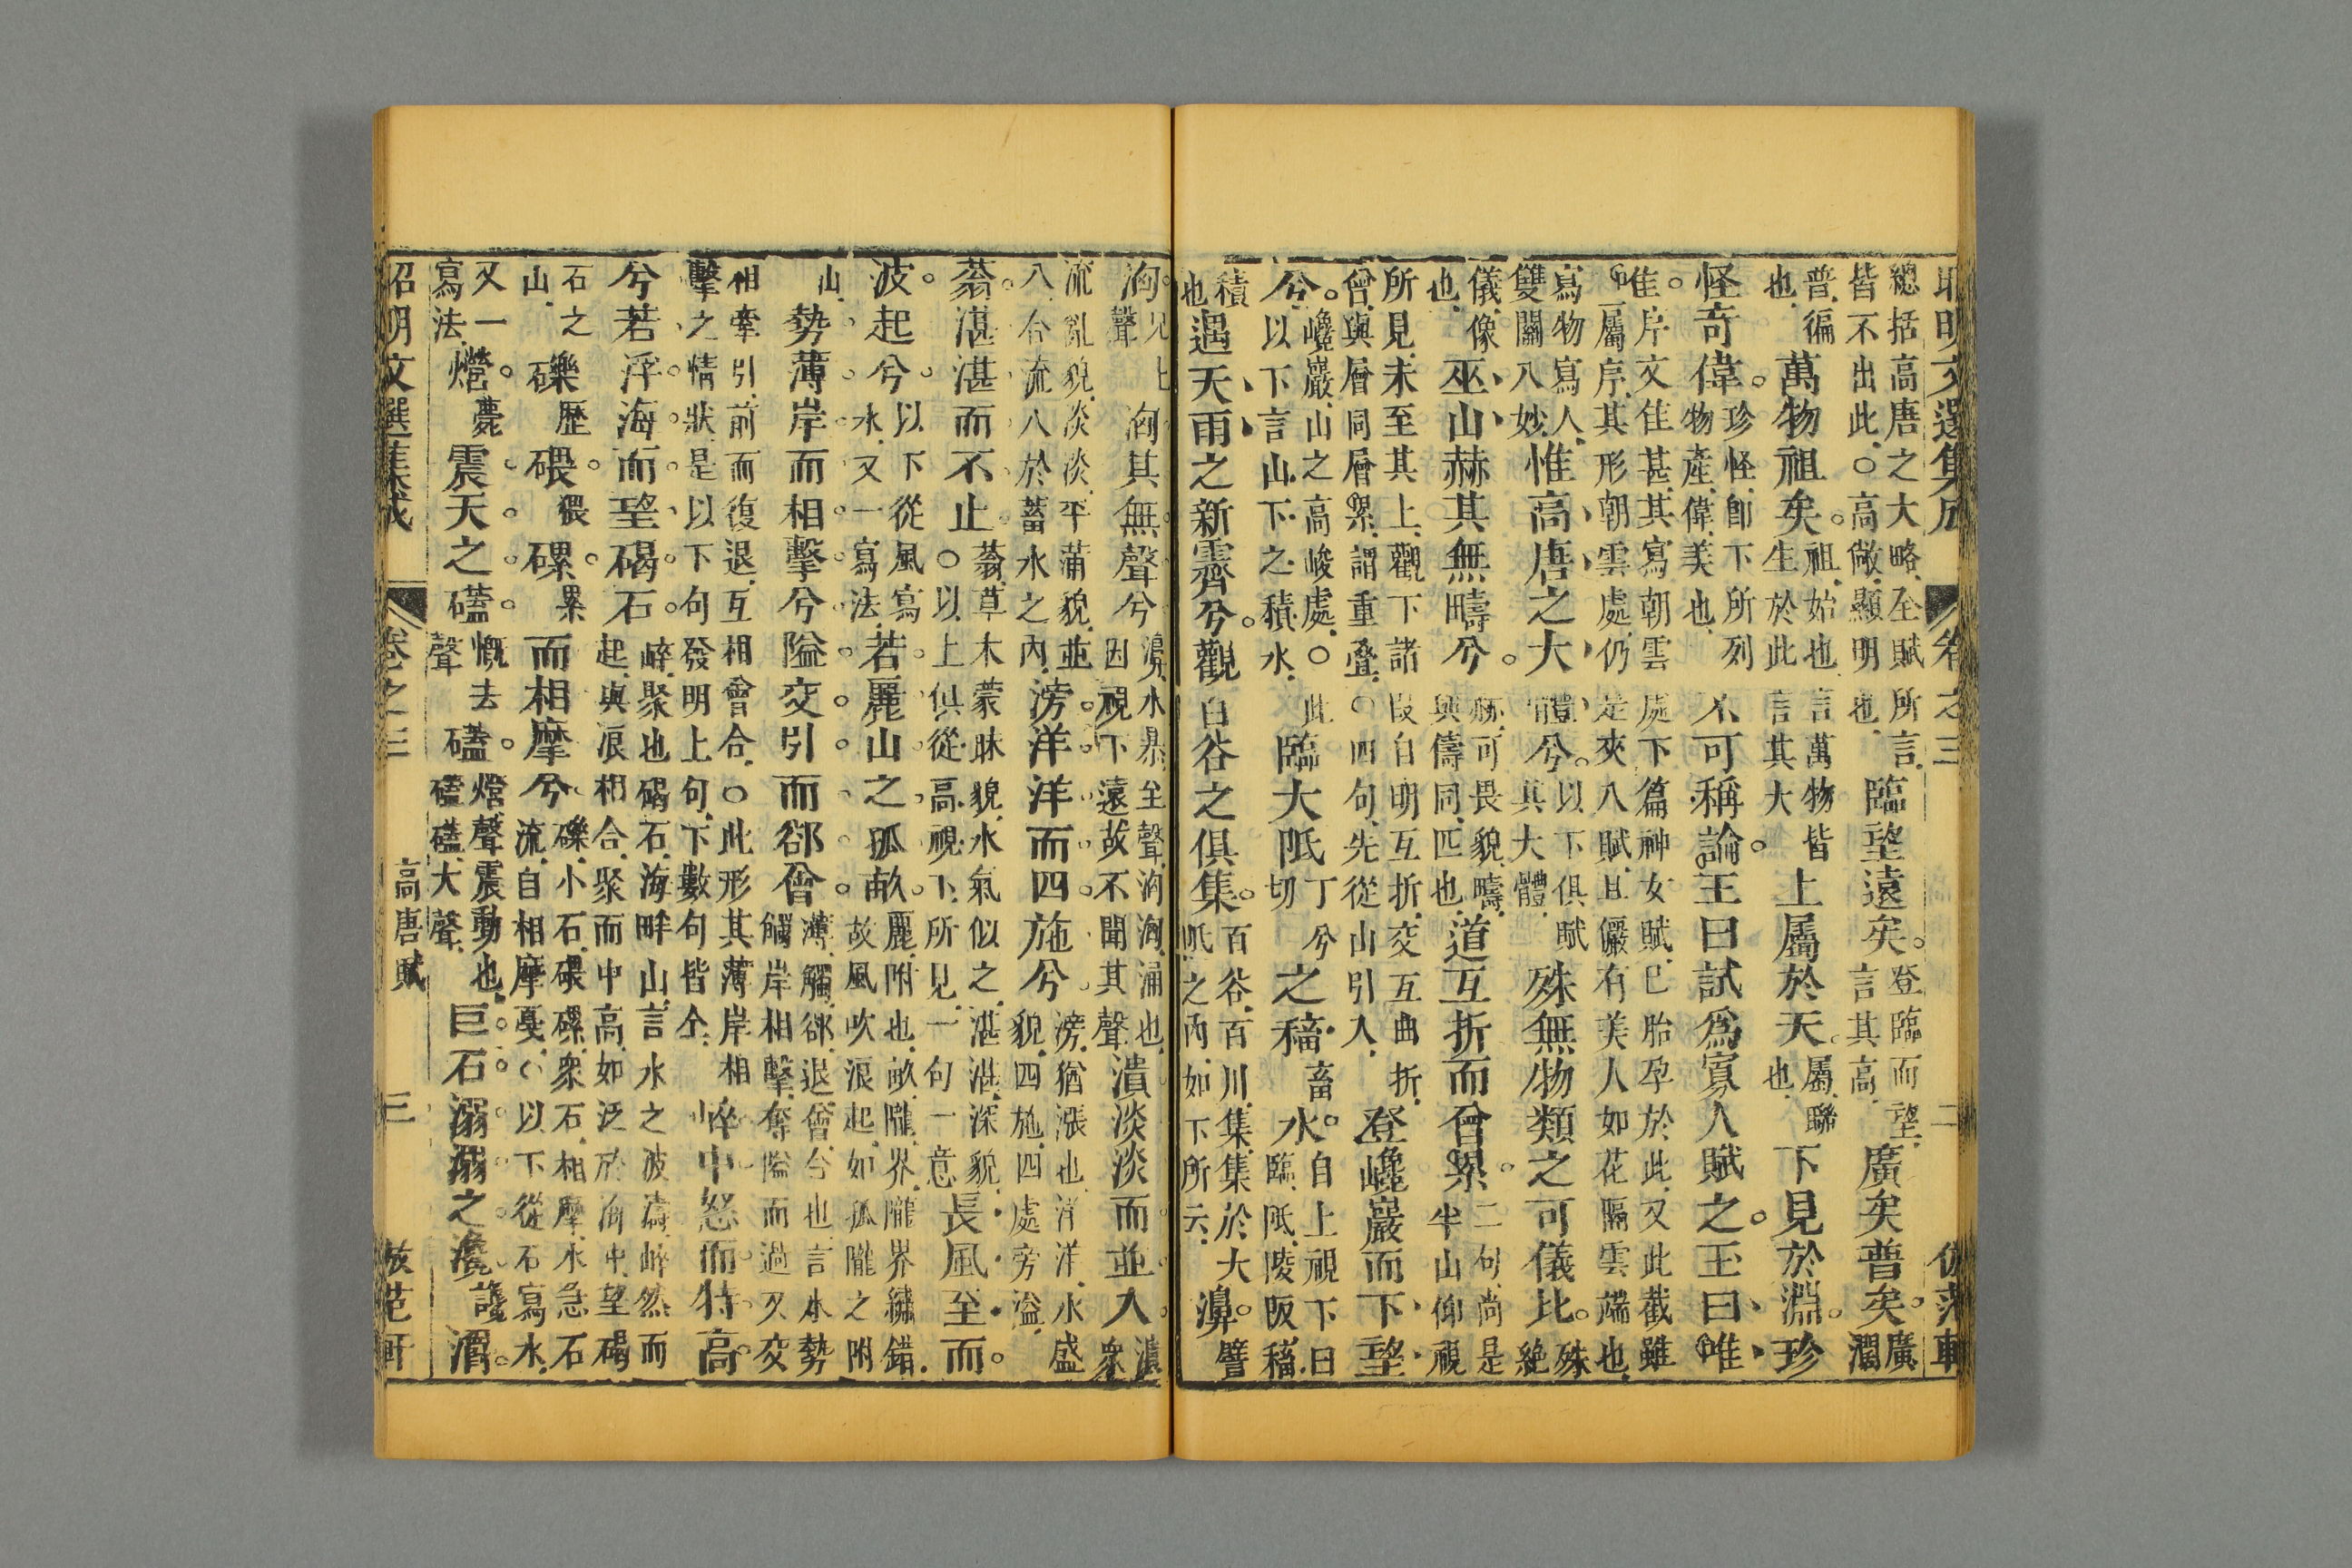 昭明文選集成 卷之三 二 倣范軒
總括高唐之大略全賦所言
皆不出此○高倣顯明也
臨望遠矣
登臨而望
言其高
廣矣普矣
廣
濶
普徧
也
萬物祖矣
祖始也言萬物皆
生於此言其大
上屬於天
屬聯
也
下見於淵珍
怪奇偉
珍怪即下所列
物產偉美也
不可稱論王曰試爲寡人賦之王曰唯
唯
片文佳甚其寫朝雲處下篇神女賦已胎孕於此又此截雖
屬序其形朝雲處仍是夾入賦且儷有美人如花隔雲端也
寫物寫人
雙關入妙
惟高唐之大體兮
以下俱賦
其大體
殊無物類之可儀比
殊
絕
儀像
也
巫山赫其無疇兮
赫可畏貌疇
與儔同匹也
道互折而曾累
二句尚是
半山仰視
所見未至其上觀下諸段自明互折交互曲折
曾與層同層累謂重叠○四句先從山引入
登巉巖而下望
兮
巉巖山之高峻處○此
以下言山下之積水
臨大阺
丁兮
切
之稸
畜
水
自上視下曰
臨阺陵阪稸
積
也
遇天雨之新霽兮觀百谷之俱集
百谷百川集集於大
阺之內如下所云
濞
譬
洶
見上
聲
洶其無聲兮
濞水暴至聲洶洶涌也
因視下遠故不聞其聲
潰淡淡而並入
潰
衆
流亂貌淡淡平蒲貌並
入合流八於蓄水之內
滂洋洋而四施兮
滂猶漲也洋洋水盛
貌四施四處旁溢
蓊湛湛而不止
蓊草木蒙昧貌水氣似之湛湛深貌
○以上俱從高視下所見一句一意
長風至而
波起兮
以下從風寫
水又一寫法
若麗山之孤畝
麗附也畝隴界隴界繡錯
故風吹浪起如孤隴之附
山
勢薄岸而相擊兮隘交引而郤會
薄觸郤退會合也言水勢
觸岸相擊奪隘而過又交
相牽引前而復退互相會合○此形其薄岸相
擊之情狀是以下句發明上句下數句皆仝
崪中怒而特高
兮若浮海而望碣石
崪聚也碣石海畔山言水之波濤崪然而
起與浪相合聚而中高如泛於海中望碣
石之
山
礫
歷
碨
猥
磥
累
而相摩兮
礫小石碨磥衆石相摩水急石
流自相摩戞○以下從石寫水
又一
寫法
薨
震天之礚
慨去
聲
礚
聲震動也
礚礚大聲
巨石溺溺之瀺
讒
灂
昭明文選集成 卷之三 高唐賦 三 倣范軒